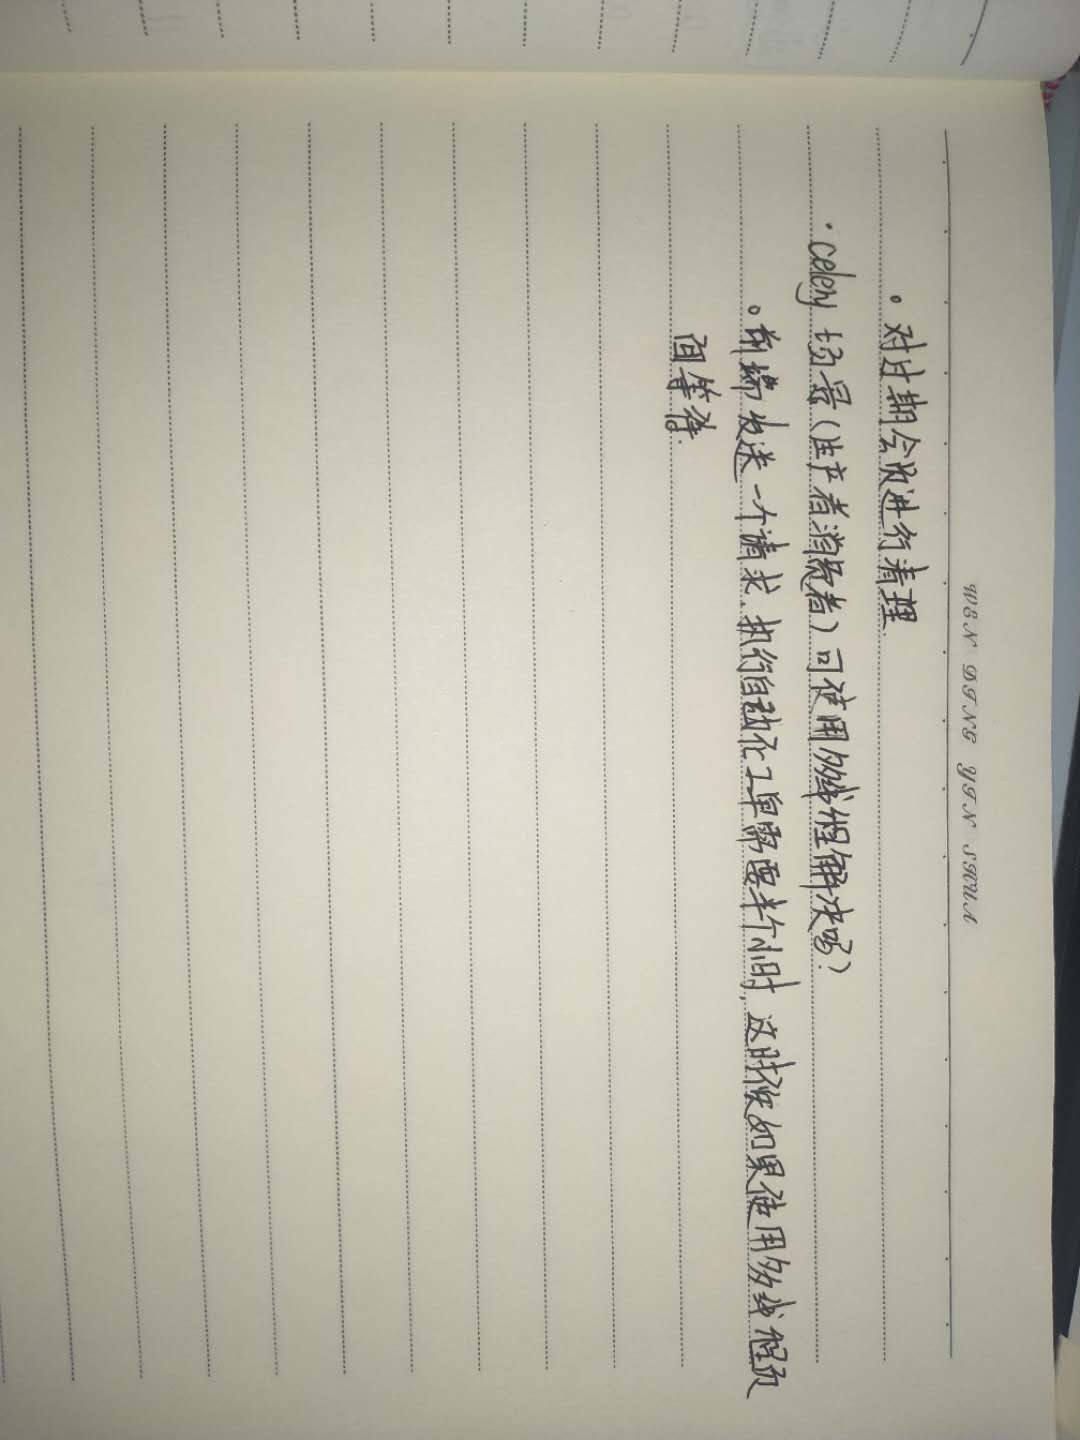 WEN DING YIN SHUA
。对过期会员进行清理.
·celery 场景(生产者消费者)可使用多线程解决吗?
。前端发送一个请求,执行自动化工单需要半个小时,这时候如果使用多线程页
面等待.